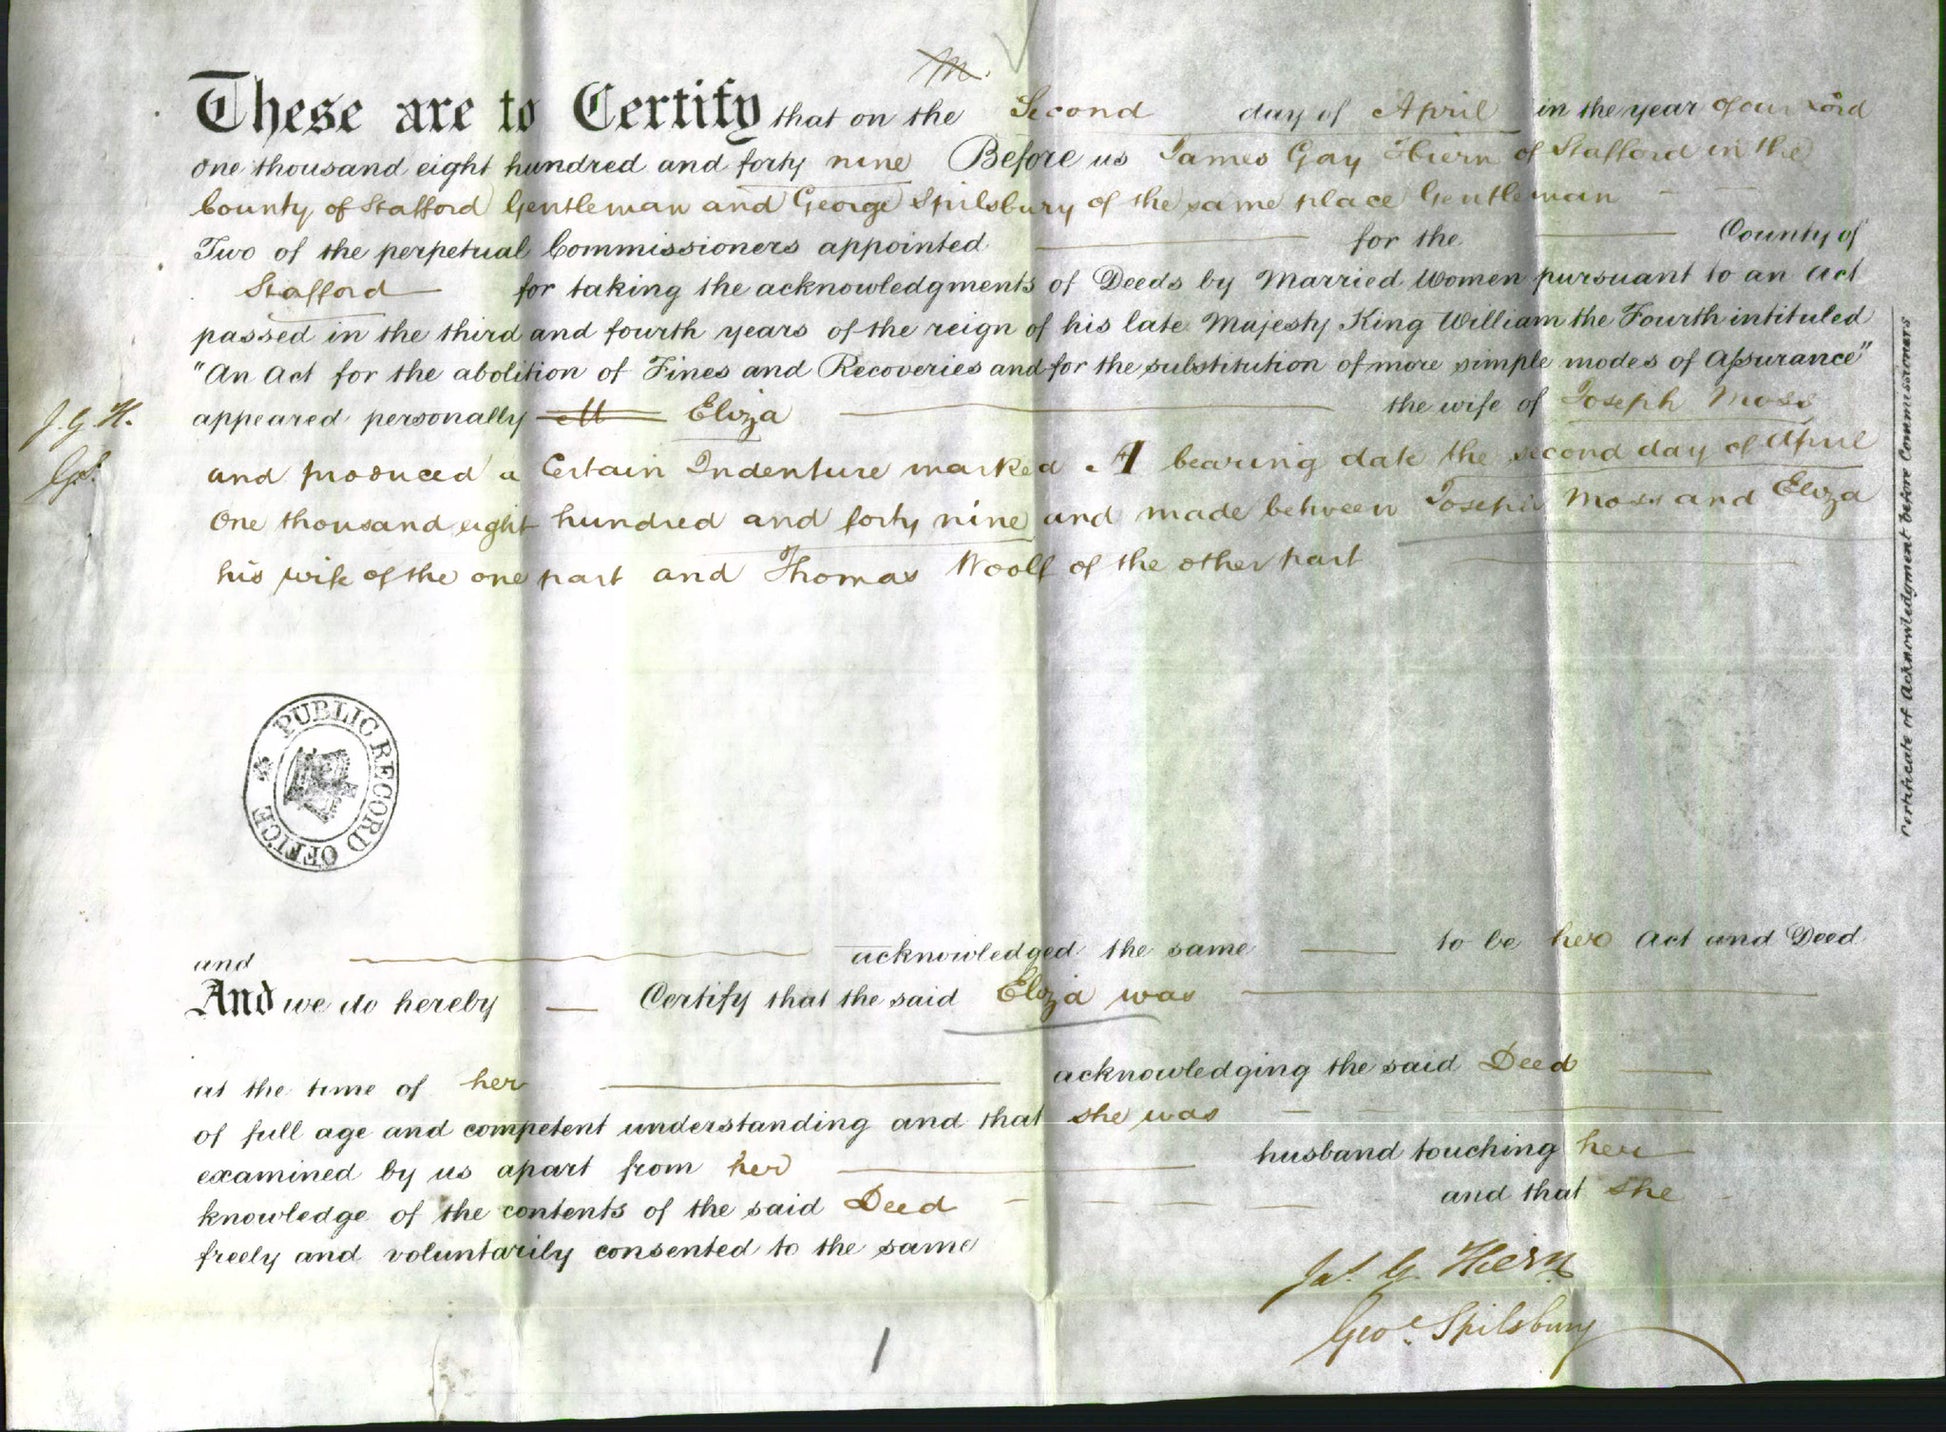 M.
These are to Certify that on the Second day of April in the year of our Lord
one thousand eight hundred and forty nine Before us James Gay Hiern of Stafford in the
County of Stafford Gentleman and George Spilsbury of the same place Gentleman
Two of the perpetual Commissioners appointed for the County of
Stafford for taking the acknowledgments of Deeds by Married Women pursuant to an Act
passed in the third and fourth years of the reign of his late Majesty King William the Fourth intituled
"An Act for the abolition of Fines and Recoveries and for the substitution of more simple modes of Assurance"
J. G. H. appeared personally Eliza the wife of Joseph Moss
G.S. and produced a Certain Indenture marked A bearing date the second day of April
One thousand eight hundred and forty nine and made between Joseph Moss and Eliza
his wife of the one part and Thomas Woolf of the other part
PUBLIC RECORD OFFICE
and acknowledged the same to be her Act and Deed
And we do hereby Certify that the said Eliza was
at the time of her acknowledging the said Deed
of full age and competent understanding and that she was
examined by us apart from her husband touching her
knowledge of the contents of the said Deed and that she
freely and voluntarily consented to the same
Jas. G. Hiern
Geoe. Spilsbury
1
Certificate of Acknowledgment before Commissioners